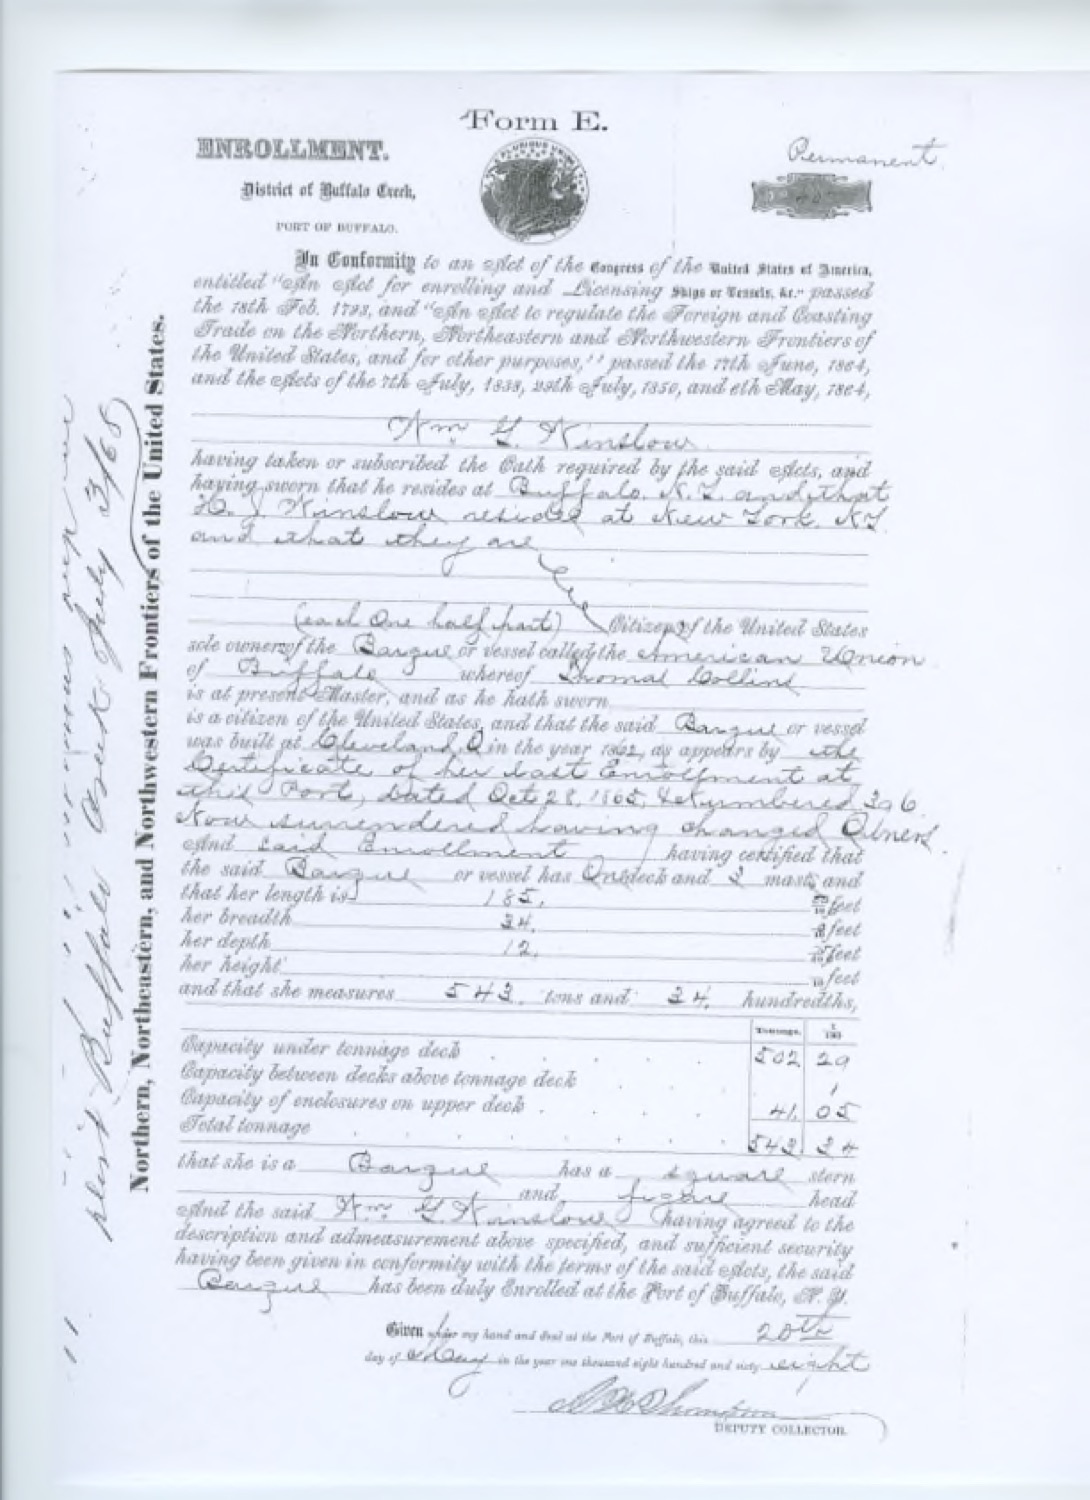 Form E.
ENROLLMENT.
Permanent
District of Buffalo Creek,
PORT OF BUFFALO.
PLURIBUS UNUM
40
In Conformity to an Act of the Congress of the United States of America,
entitled "An Act for enrolling and Licensing Ships or Vessels, &c." passed
the 18th Feb. 1793, and "An Act to regulate the Foreign and Coasting
Trade on the Northern, Northeastern and Northwestern Frontiers of
the United States, and for other purposes," passed the 17th June, 1864,
and the Acts of the 7th July, 1838, 29th July, 1850, and 6th May, 1864,
Wm G. Winslow
having taken or subscribed the Oath required by the said Acts, and
having sworn that he resides at Buffalo, N.Y. and that
H. J. Winslow resides at New York, NY
and that they are
(each One half part) Citizens of the United States
sole owners of the Barque or vessel called the American Union
of Buffalo whereof Thomas Collins
is at present Master, and as he hath sworn
is a citizen of the United States, and that the said Barque or vessel
was built at Cleveland, O in the year 1862, as appears by the
Certificate of her last Enrollment at
this Port, dated Oct 28, 1865, & Numbered 396
Now surrendered having changed Owners.
And said Enrollment having certified that
the said Barque or vessel has One deck and 3 masts and
that her length is 185, feet
her breadth 34. feet
her depth 12, feet
her height feet
and that she measures 543. tons and 34. hundredths,
Tonnage. 1/100
Capacity under tonnage deck 502 29
Capacity between decks above tonnage deck
Capacity of enclosures on upper deck 41. 05
Total tonnage 543 34
that she is a Barque has a square stern
and figure head
And the said Wm. G. Winslow having agreed to the
description and admeasurement above specified, and sufficient security
having been given in conformity with the terms of the said Acts, the said
Barque has been duly Enrolled at the Port of Buffalo, N. Y.
Given under my hand and Seal at the Port of Buffalo, this 20th
day of May in the year one thousand eight hundred and sixty eight
Thompson
DEPUTY COLLECTOR.
Northern, Northeastern, and Northwestern Frontiers of the United States.
Buffalo July 3/68